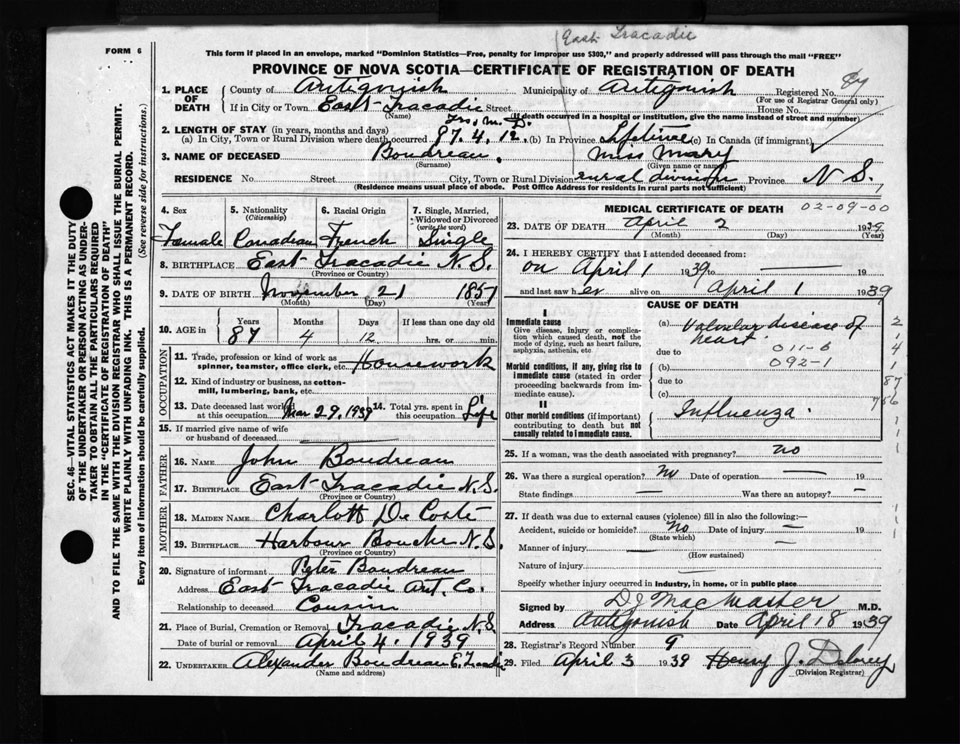 East Tracadie
FORM 6
This form if placed in an envelope, marked "Dominion Statistics—Free, penalty for improper use $300," and properly addressed will pass through the mail "FREE"
PROVINCE OF NOVA SCOTIA—CERTIFICATE OF REGISTRATION OF DEATH
1. PLACE OF DEATH
County of Antigonish Municipality of Antigonish Registered No.
(For use of Registrar General only)
If in City or Town East Tracadie Street House No.
(Name) (If death occurred in a hospital or institution, give the name instead of street and number)
Yrs M. D.
2. LENGTH OF STAY (in years, months and days)
(a) In City, Town or Rural Division where death occurred 87. 4. 12. (b) In Province Lifetime (c) In Canada (if immigrant)
3. NAME OF DECEASED Boudreau, Miss Mary
(Surname) (Given name or name)
RESIDENCE No. Street City, Town or Rural Division rural division Province N S.
(Residence means usual place of abode. Post Office Address for residents in rural parts not sufficient)
4. Sex 5. Nationality (Citizenship) 6. Racial Origin 7. Single, Married, Widowed or Divorced (write the word)
Female Canadian French Single
8. BIRTHPLACE East Tracadie N. S.
(Province or Country)
9. DATE OF BIRTH November 21 1851
(Month) (Day) (Year)
10. AGE in Years Months Days If less than one day old
87 4 12 hrs. or min.
OCCUPATION
11. Trade, profession or kind of work as spinner, teamster, office clerk, etc. Housework
12. Kind of industry or business, as cotton-mill, lumbering, bank, etc.
13. Date deceased last worked at this occupation Mar 29. 1939 14. Total yrs. spent in this occupation Life
15. If married give name of wife or husband of deceased
FATHER
16. NAME John Boudreau
17. BIRTHPLACE East Tracadie N. S.
(Province or Country)
MOTHER
18. MAIDEN NAME Charlott De Coste
19. BIRTHPLACE Harbour Bouche N. S.
(Province or Country)
20. Signature of informant Peter Boudreau
Address East Tracadie Ant. Co.
Relationship to deceased Cousin
21. Place of Burial, Cremation or Removal Tracadie N.S.
Date of burial or removal April 4. 1939
22. UNDERTAKER Alexander Boudreau E. Tracadie
(Name and address)
MEDICAL CERTIFICATE OF DEATH 02-09-00
23. DATE OF DEATH April 2 1939
(Month) (Day) (Year)
24. I HEREBY CERTIFY that I attended deceased from:
on April 1 1939 to — 19
and last saw her alive on April 1 1939
CAUSE OF DEATH
I
Immediate cause
Give disease, injury or complication which caused death, not the mode of dying, such as heart failure, asphyxia, asthenia, etc
(a) Valvular disease of heart
due to 011-6
Morbid conditions, if any, giving rise to immediate cause (stated in order proceeding backwards from immediate cause).
(b) 092-1
due to
(c)
II
Other morbid conditions (if important) contributing to death but not causally related to immediate cause.
Influenza.
25. If a woman, was the death associated with pregnancy? no
26. Was there a surgical operation? No Date of operation — 19
State findings — Was there an autopsy? —
27. If death was due to external causes (violence) fill in also the following:—
Accident, suicide or homicide? No Date of injury — 19
(State which)
Manner of injury —
(How sustained)
Nature of injury —
Specify whether injury occurred in industry, in home, or in public place
Signed by MacMaster M.D.
Address Antigonish Date April 18 1939
28. Registrar's Record Number 9
29. Filed April 3 1939 Henry J.
(Division Registrar)
SEC. 46—VITAL STATISTICS ACT MAKES IT THE DUTY
OF THE UNDERTAKER OR PERSON ACTING AS UNDER-
TAKER TO OBTAIN ALL THE PARTICULARS REQUIRED
IN THE "CERTIFICATE OF REGISTRATION OF DEATH"
AND TO FILE THE SAME WITH THE DIVISION REGISTRAR WHO SHALL ISSUE THE BURIAL PERMIT.
WRITE PLAINLY WITH UNFADING INK. THIS IS A PERMANENT RECORD.
Every item of information should be carefully supplied. (See reverse side for instructions.)